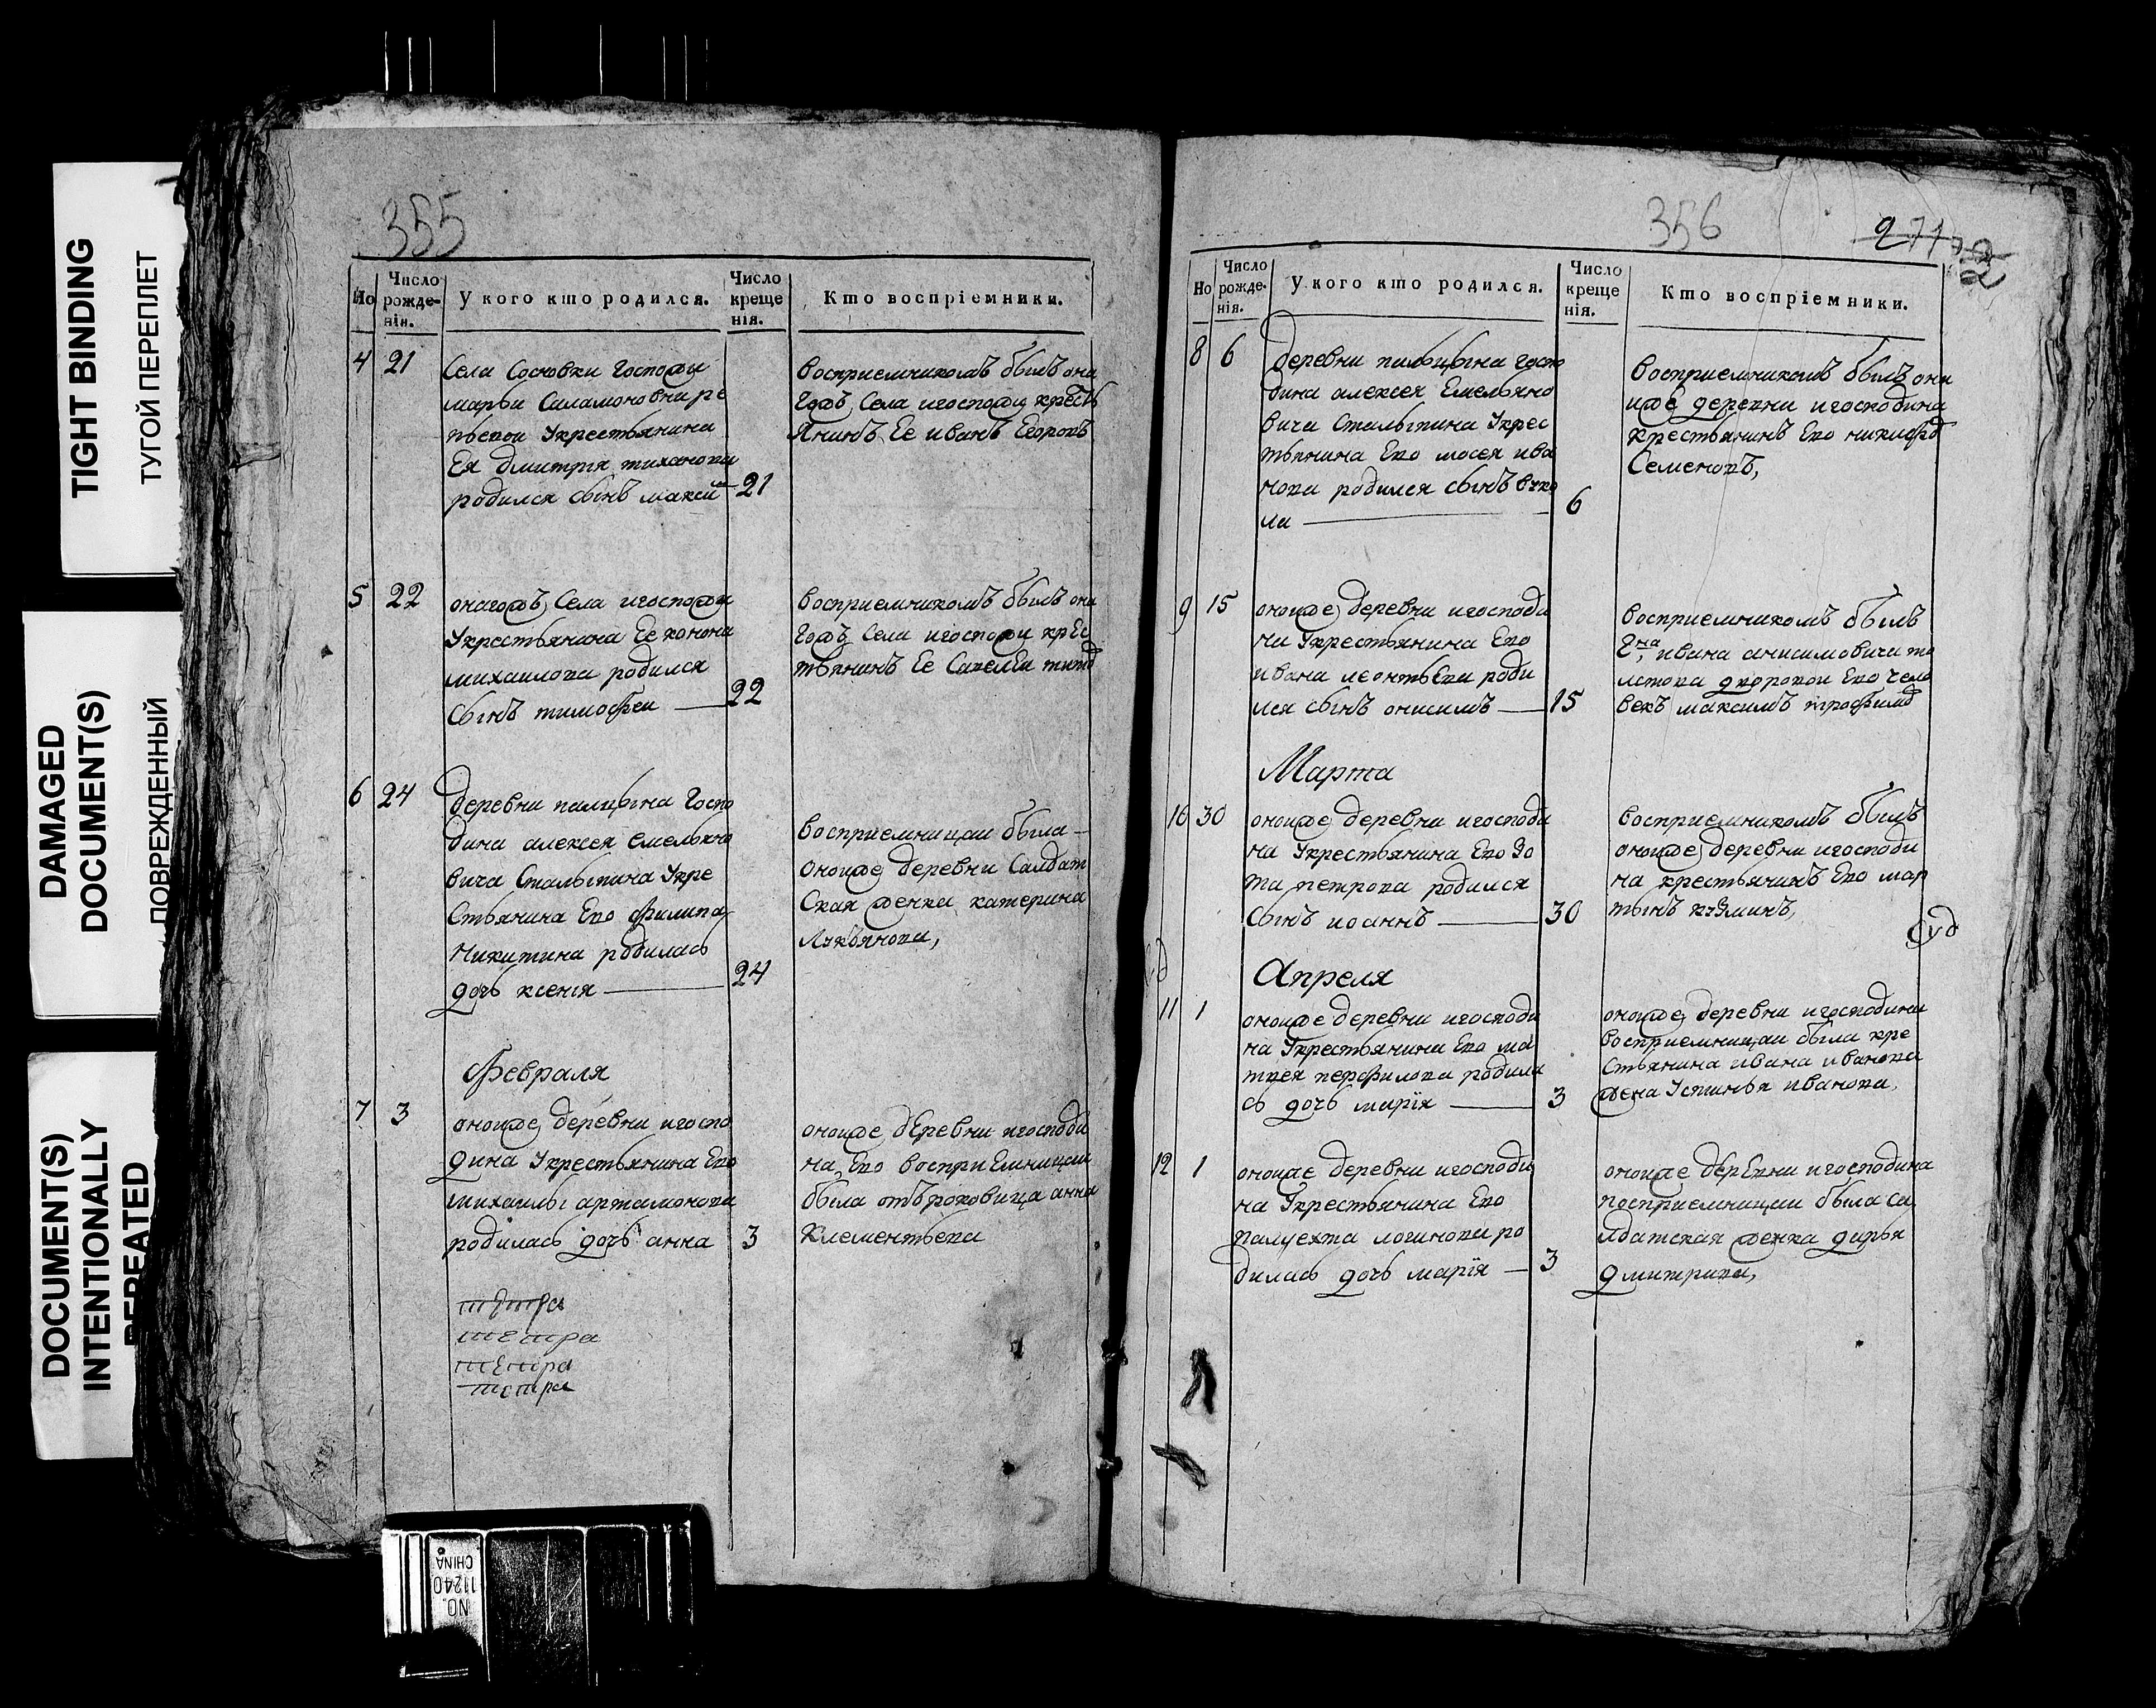 TIGHT BINDING
ТУГОЙ ПЕРЕПЛЕТ
DAMAGED
DOCUMENT(S)
ПОВРЕЖДЕННЫЙ
DOCUMENT(S)
INTENTIONALLY
REPEATED
355
Но
Число рожде-нія.
У кого кто родился.
Число креще нія.
Кто воспріемники.
4 21
Села Сосновки Госпожи
марьи Саламоновни ре
пьевои Укрестьянина
Ея дмитрія тиханова
родился сынъ максим 21
восприемникомъ былъ она
гожъ Села игоспожи кресть
янинъ Ее иванъ Егоровъ
5 22
онагожъ Села игоспожи
Укрестьянина Ее конона
михаилова родился
сынъ тимофеи 22
восприемникомъ былъ она
гожъ Села игоспожи крес
тьянинъ Ее Савелеи титов
6 24
деревни палицына Госпо
дина алексея емельяно
вича Сталыпина Укре
стьянина Ево филипа
Никитина родилась
дочь ксенія 24
восприемницаи была
оноиже деревни Салдат
ская женка катерина
Лукьянова,
Февраля
7 3
оноиже деревни игоспо
дина Укрестьянина Ево
михаилы артамонова
родилась дочь анна 3
оноиже деревни игосподи
на Ево восприемницаи
была отъроковица анна
Клементьева
тетра
тетра
тетра
тетра
356
271
72
Но
Число рожде-нія.
У кого кто родился.
Число креще нія.
Кто воспріемники.
8 6
деревни палицына госпо
дина алексея Емельяно
вича Сталыпина Укрес
тьянина Ево мосея ива
нова родился сынъ вуко
ла 6
восприемникомъ былъ она
иже деревни игосподина
крестьянинъ Ево никифор
Семеновъ,
9 15
оноиже деревни игосподи
на Укрестьянина Ево
ивана леонтьева роди
лся сынъ онисимъ 15
восприемникомъ былъ
Гна ивана анисимовича то
лстова дворовои Ево чело
векъ максимъ трофимов
Марта
10 30
оноиже деревни игосподи
на Укрестьянина Ево Зо
та петрова родился
сынъ иоаннъ 30
восприемникомъ былъ
оноиже деревни игосподи
на крестьянинъ Ево мар
тынъ кузминъ,
Апреля
11 1
оноиже деревни игосподи
на Укрестьянина Ево ма
твея перфилова родила
сь дочь марїя 3
оноиже деревни игосподина
восприемницаи была кре
стьянина ивана иванова
жена Устинья иванова,
12 1
оноиже деревни игосподи
на Укрестьянина Ево
палуехта логинова ро
дилась дочь марїя 3
оноиже деревни игосподина
восприемницаи была са
лдатская женка дарья
дмитрива,
NO.
11240
CHINA